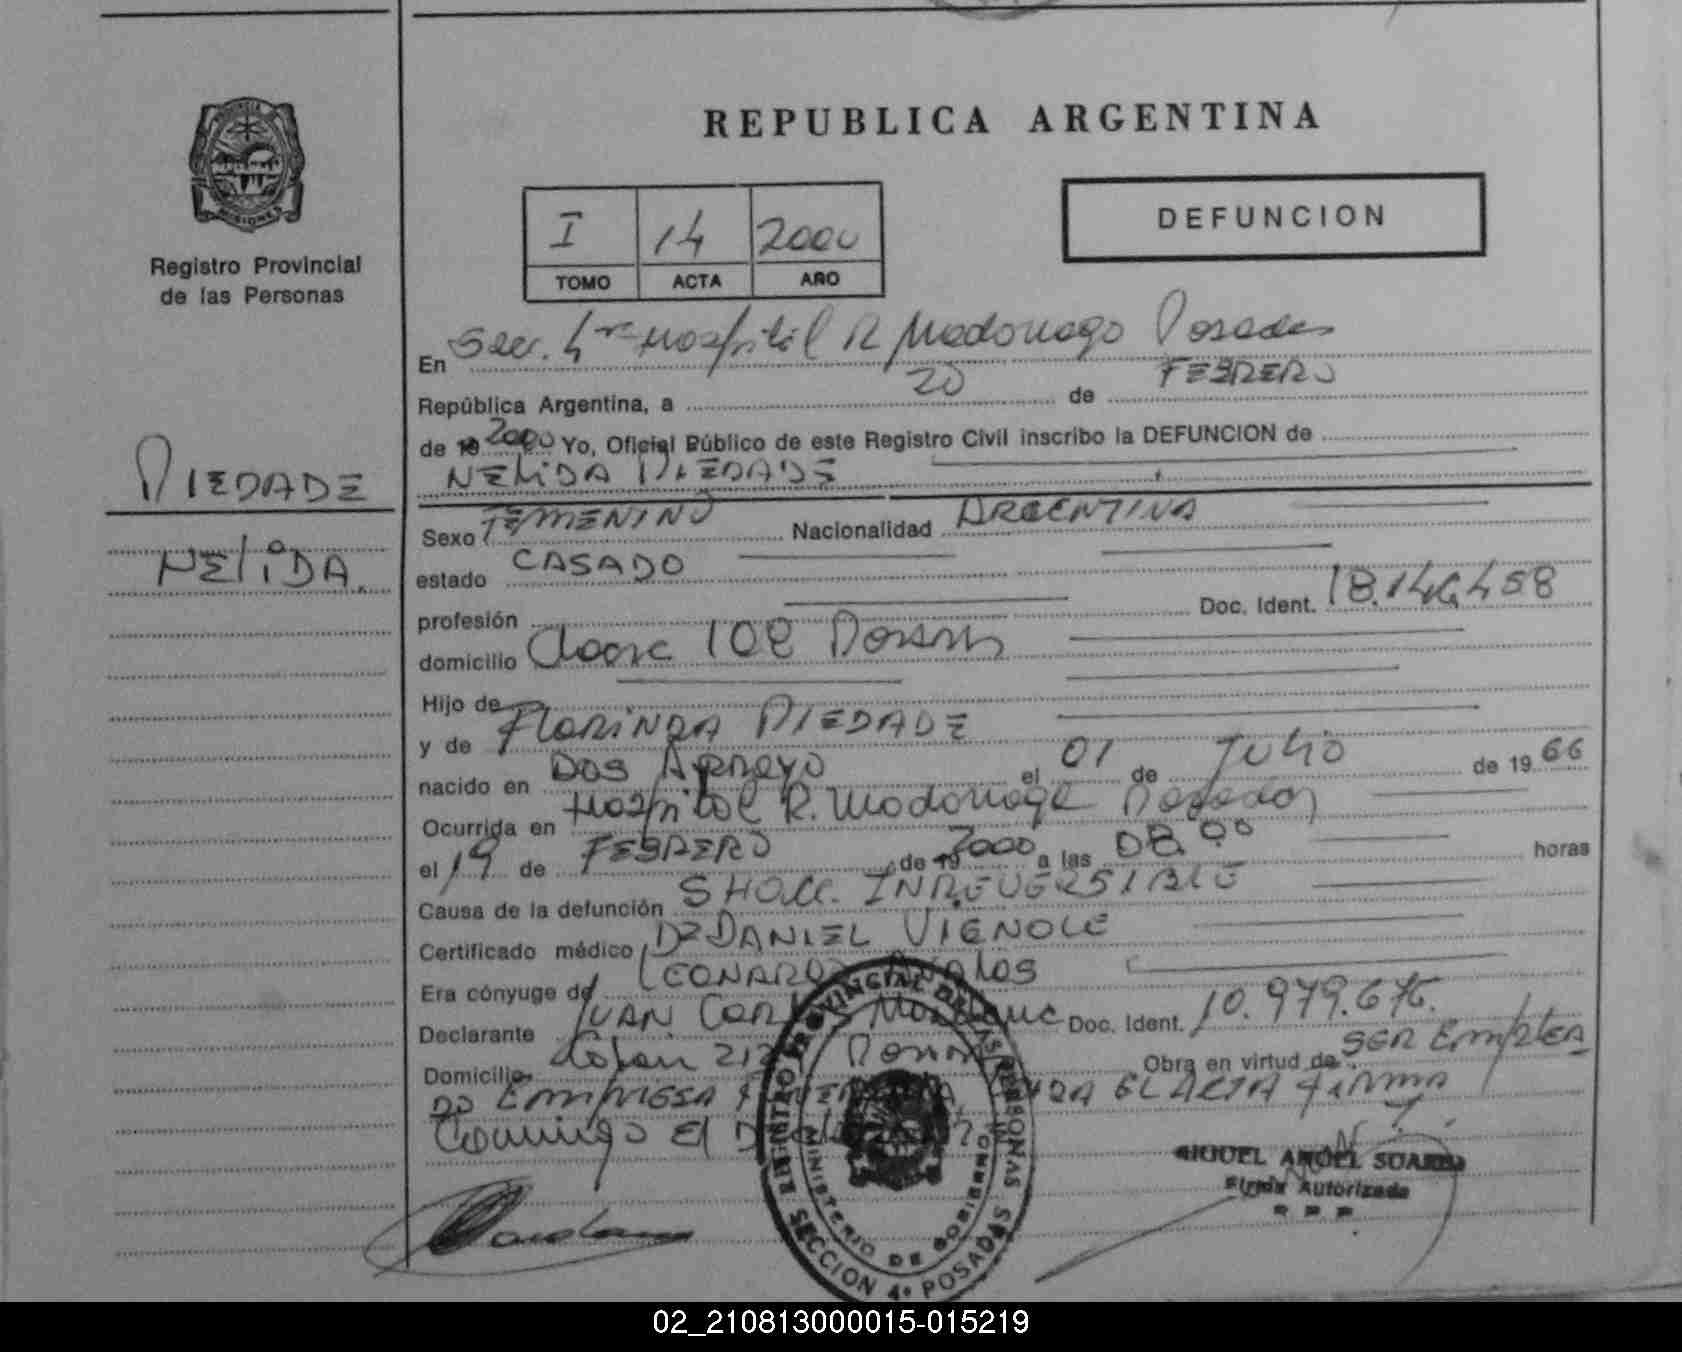 REPUBLICA ARGENTINA
MISIONES
Registro Provincial
de las Personas
DEFUNCION
I 14 2000
TOMO ACTA AÑO
En Secc. 4ª Hospital R Madariaga Posadas
República Argentina, a 20 de FEBRERO
de 19 2000 Yo, Oficial Público de este Registro Civil inscribo la DEFUNCION de
NELIDA PIEDADE
PIEDADE
NELIDA.
Sexo FEMENINO Nacionalidad ARGENTINA
estado CASADO
profesión Doc. Ident. 18.146.458
domicilio Chacra 102 Posadas
Hijo de
y de FLORINDA PIEDADE
nacido en Dos Arroyo el 01 de JULIO de 1966
Ocurrida en Hospital R. Madariaga Posadas
el 19 de FEBRERO de 19 2000 a las 08.00 horas
Causa de la defunción SHOCK INREVERSIBLE
Certificado médico DR DANIEL VIGNOLE
Era cónyuge de LEONARDO Avalos
Declarante JUAN Carlos Doc. Ident. 10.979.676.
Domicilio Colon 212 Posadas Obra en virtud de SER EMPLEA
DO EMPRESA FUNERARIA EL ACTA FIRMA
Comuniqo El
REGISTRO PROVINCIAL DE LAS PERSONAS
MINISTERIO DE GOBIERNO
SECCION 4ª POSADAS
MIGUEL ANGEL SUAREZ
Firma Autorizada
R P P
02_210813000015-015219